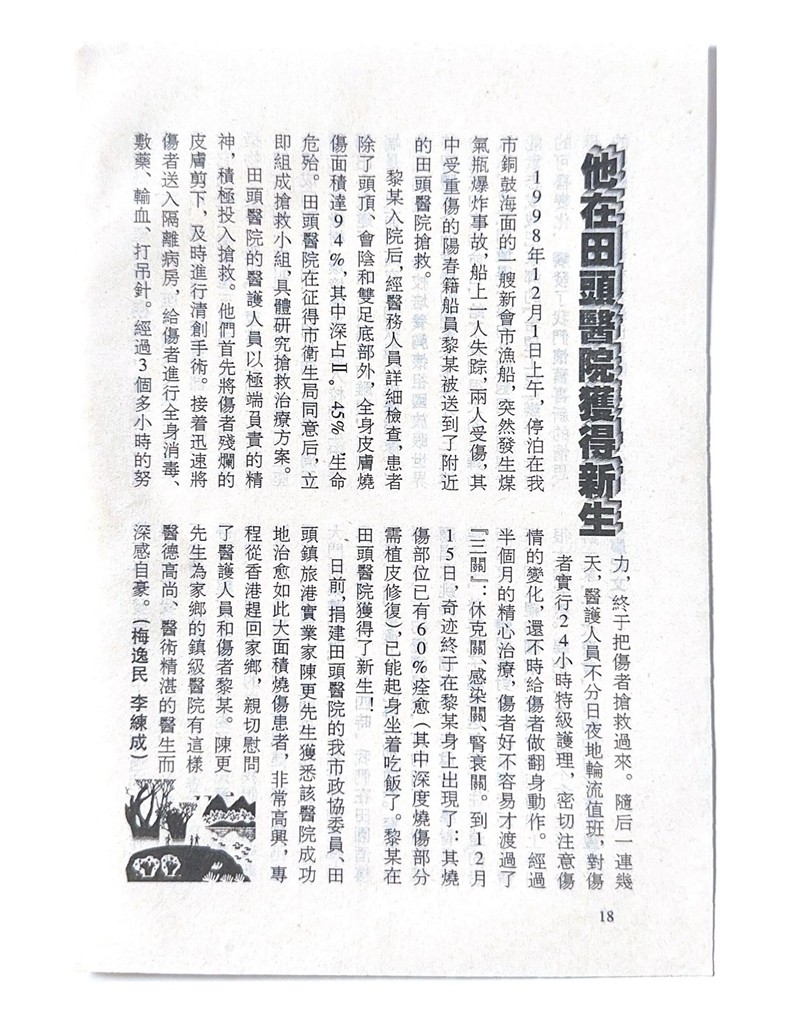 他在田頭醫院獲得新生
1998年12月1日上午，停泊在我
市銅鼓海面的一艘新會市漁船，突然發生煤
氣瓶爆炸事故，船上一人失踪，兩人受傷，其
中受重傷的陽春籍船員黎某被送到了附近
的田頭醫院搶救。
黎某入院后，經醫務人員詳細檢查，患者
除了頭頂、會陰和雙足底部外，全身皮膚燒
傷面積達94%，其中深占Ⅱ。45%，生命
危殆。田頭醫院在征得市衛生局同意后，立
即組成搶救小組，具體研究搶救治療方案。
田頭醫院的醫護人員以極端負責的精
神，積極投入搶救。他們首先將傷者殘爛的
皮膚剪下，及時進行清創手術。接着迅速將
傷者送入隔離病房，給傷者進行全身消毒、
敷藥、輸血、打吊針。經過3個多小時的努
力，終于把傷者搶救過來。隨后一連幾
天，醫護人員不分日夜地輪流值班，對傷
者實行24小時特級護理，密切注意傷
情的變化，還不時給傷者做翻身動作。經過
半個月的精心治療，傷者好不容易才渡過了
『三關』：休克關、感染關、腎衰關。到12月
15日，奇迹終于在黎某身上出現了：其燒
傷部位已有60%痊愈（其中深度燒傷部分
需植皮修復），已能起身坐着吃飯了。黎某在
田頭醫院獲得了新生！
日前，捐建田頭醫院的我市政協委員、田
頭鎮旅港實業家陳更先生獲悉該醫院成功
地治愈如此大面積燒傷患者，非常高興，專
程從香港趕回家鄉，親切慰問
了醫護人員和傷者黎某。陳更
先生為家鄉的鎮級醫院有這樣
醫德高尚、醫術精湛的醫生而
深感自豪。（梅逸民 李練成）
18